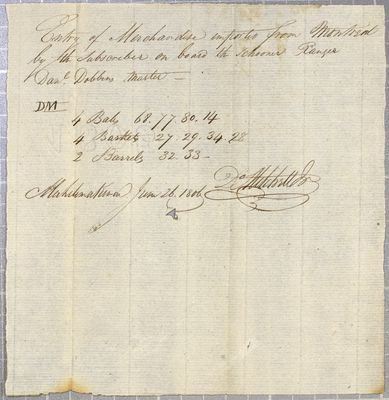 Entry of Merchandise imported from Montreal
by the Subscriber on board the schooner Ranger
Danl Dobbins Master —
DM
4 Bals 68. 77. 80. 14
4 Baskets 27. 29. 34. 28
2 Barrels 32. 33 —
Michilmakinac June 26. 1806
D. Mitchell Jr